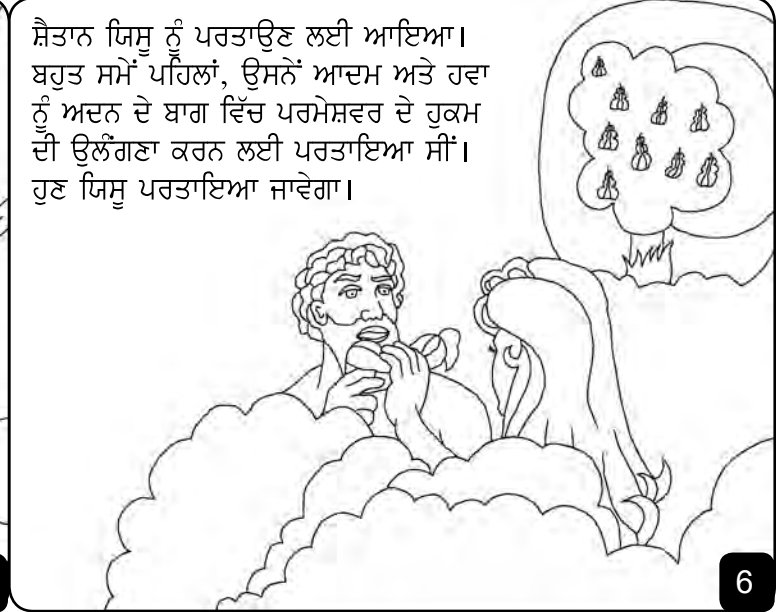 ਸ਼ੈਤਾਨ ਯਿਸੂ ਨੂੰ ਪਰਤਾਉਣ ਲਈ ਆਇਆ।
ਬਹੁਤ ਸਮੇਂ ਪਹਿਲਾਂ, ਉਸਨੇਂ ਆਦਮ ਅਤੇ ਹਵਾ
ਨੂੰ ਅਦਨ ਦੇ ਬਾਗ ਵਿੱਚ ਪਰਮੇਸ਼ਵਰ ਦੇ ਹੁਕਮ
ਦੀ ਉਲੰਗਣਾ ਕਰਨ ਲਈ ਪਰਤਾਇਆ ਸੀਂ।
ਹੁਣ ਯਿਸੂ ਪਰਤਾਇਆ ਜਾਵੇਗਾ।
6